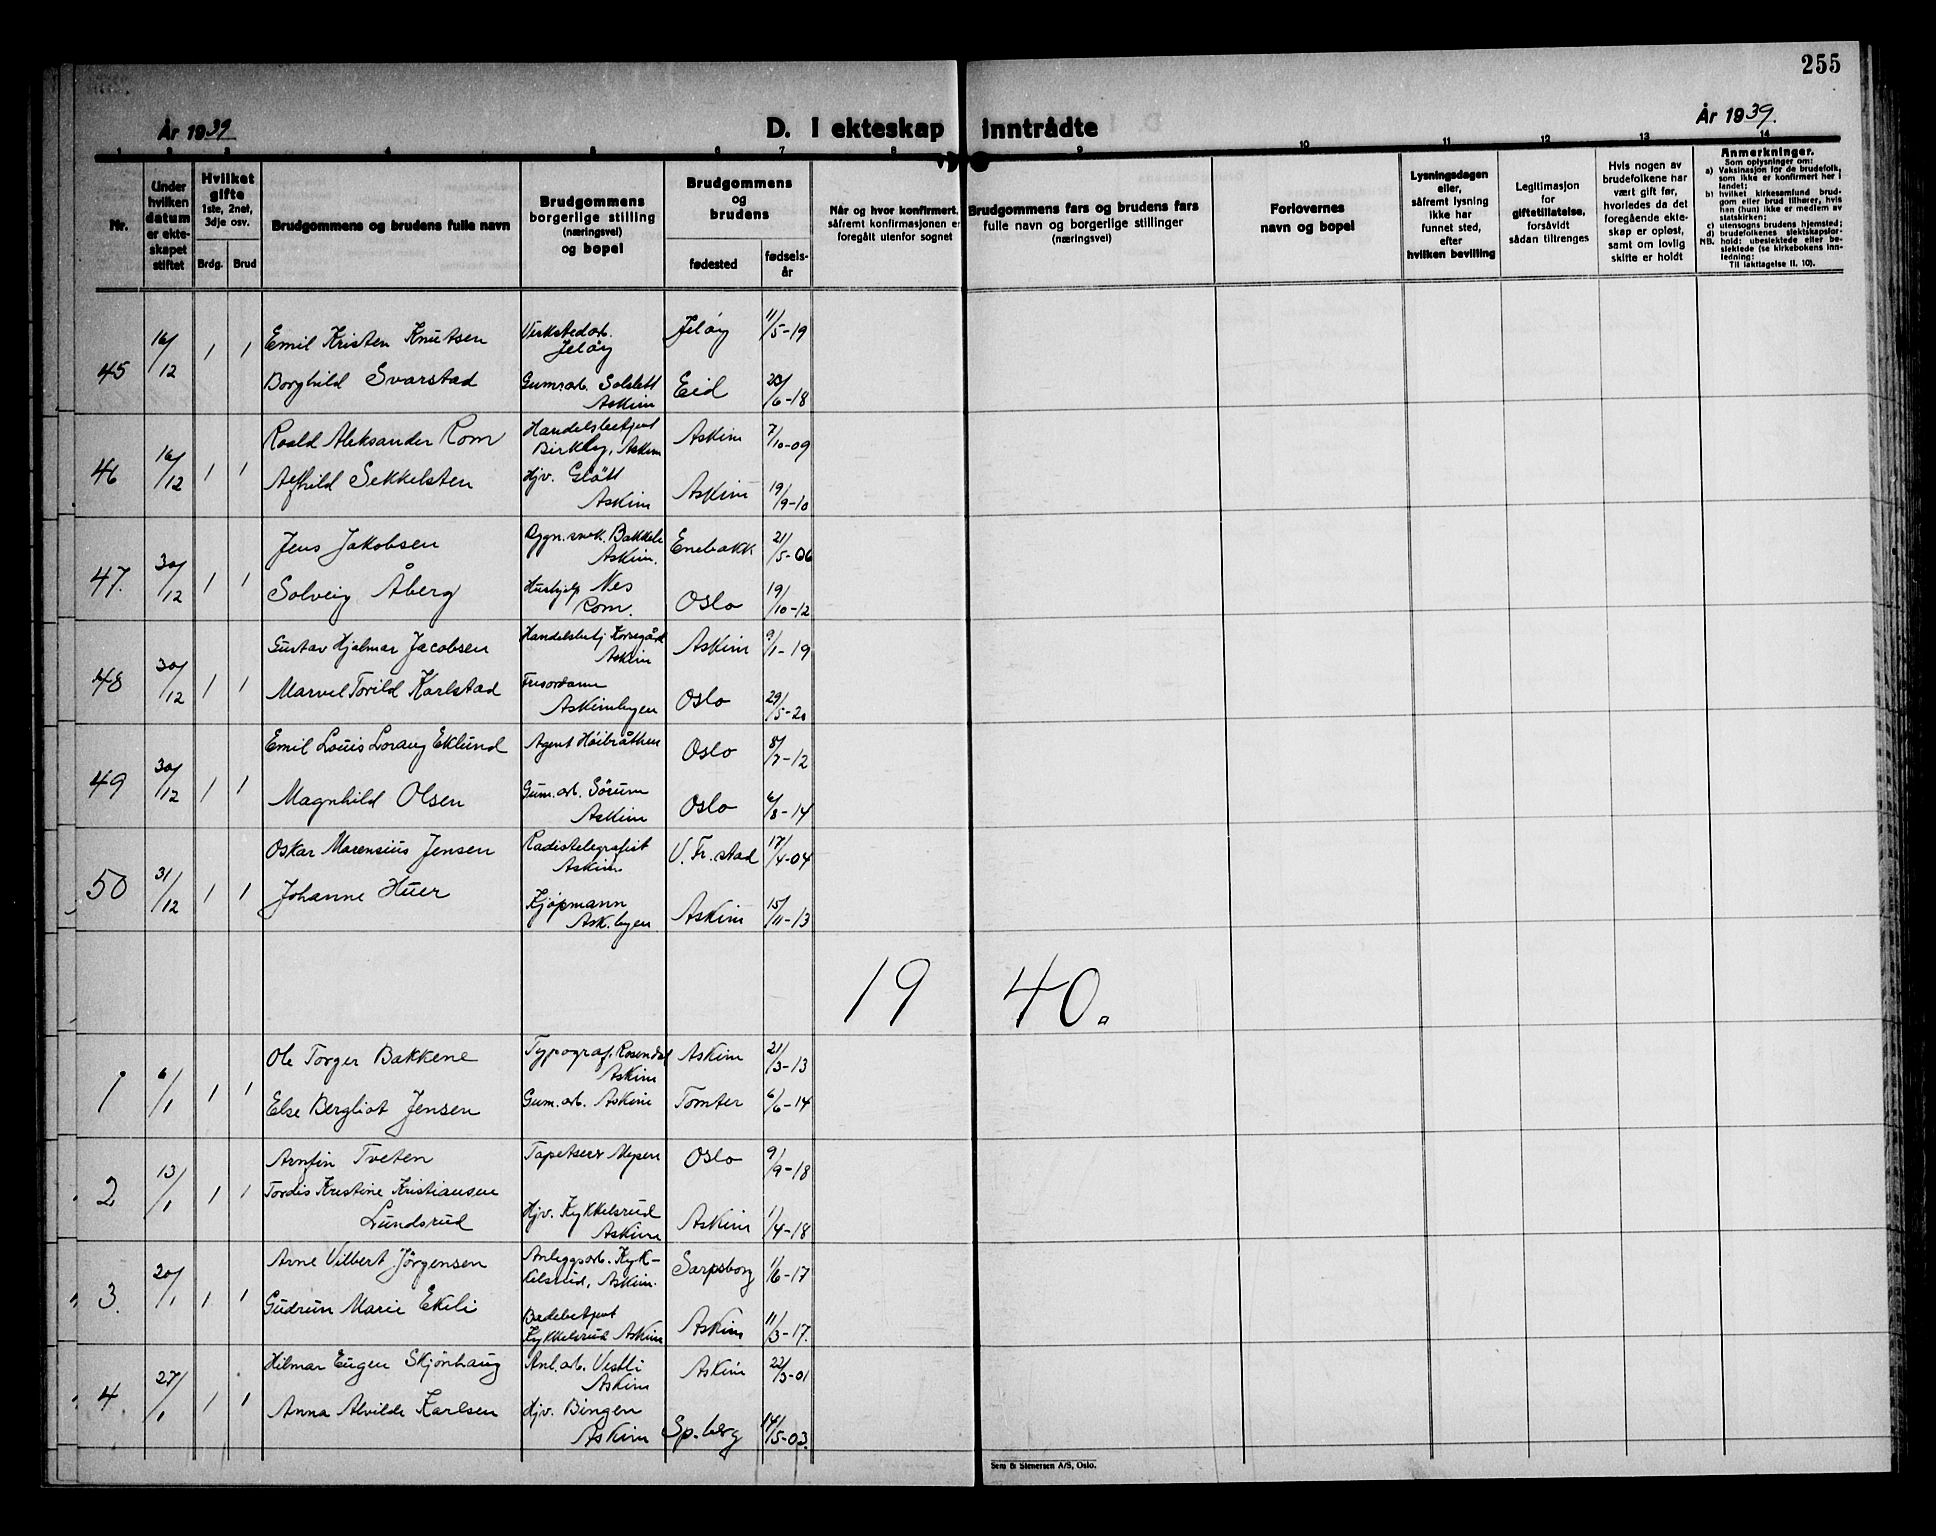 255
År 1939
D. I ekteskap inntrådte
År 1939.
1 2 3 4 5 6 7 8 9 10 11 12 13 14
Nr.
Under hvilken datum er ekte-skapet stiftet
Hvilket gifte
1ste, 2net, 3dje osv.
Brdg. Brud
Brudgommens og brudens fulle navn
Brudgommens borgerlige stilling (næringsvei) og bopel
Brudgommens og brudens
fødested
fødsels-år
Når og hvor konfirmert, såfremt konfirmasjonen er foregått utenfor sognet
Brudgommens fars og brudens fars fulle navn og borgerlige stillinger (næringsvei)
Forlovernes navn og bopel
Lysningsdagen eller, såfremt lysning ikke har funnet sted, efter hvilken bevilling
Legitimasjon for giftetillatelse, forsåvidt sådan tiltrenges
Hvis nogen av brudefolkene har vært gift før, hvorledes da det foregående ekte-skap er opløst, samt om lovlig skifte er holdt
Anmerkninger.
Som oplysninger om:
a) Vaksinasjon for de brudefolk, som ikke er konfirmert her i landet;
b) hvilket kirkesamfund brud-gom eller brud tilhører, hvis han (hun) ikke er medlem av statskirken;
c) utensogns brudens hjemsted;
d) brudefolkenes slektskapsfor-hold: ubeslektede eller be-slektede (se kirkebokens inn-ledning;
NB. Til iakttagelse II. 10).
45 16/12 1 1 Emil Kristen Knutsen Verkstedarb. Jeløy Jeløy 11/5-19
Borghild Svarstad Gum.arb. Solslett Askim Eid 23/6-18
46 16/12 1 1 Roald Aleksander Rom Handelsbetjent Birkely, Askim Askim 7/10-09
Alfhild Sekkelsten Hjv. Glött Askim Askim 19/9-10
47. 30/12 1 1 Jens Jakobsen Bygn.snek. Bakkeli Askim. Enebakk 21/5-06
Solveig Åberg Hushjelp Nes Rom. Oslo 19/10-12
48 30/12 1 1 Gustav Hjalmar Jacobsen Handelsbetj Korsegård Askim Askim 9/1-19
Marvel Torild Karlstad Frisordame Askimbyen Oslo 29/5-20
49 30/12 1 1 Emil Louis Lorang Eklund Agent Høibråthen Oslo 8/7-12
Magnhild Olsen Gum.arb. Sörum Askim Oslo 6/8-14
50 31/12 1 1 Oskar Marensius Jensen Radiotelegrafist Askim V. Fr.stad 17/4-04
Johanne Huer Kjøpmann Ask.byen. Askim 15/11-13
19 40.
1 6/1 1 1 Ole Torger Bakkene Typograf, Rosendal Askim Askim 21/3-13
Else Bergliot Jensen Gum.arb. Askim Tomter 6/6-14
2 13/1 1 1 Arnfin Tveten Tapetserer Mysen Oslo 9/9-18
Tordis Kristine Kristiansen Lundsrud Hjv. Kykkelsrud Askim Askim 1/4-18
3. 20/1 1 1 Arne Vilbert Jörgensen Anleggsarb. Kyk-kelsrud, Askim. Sarpsborg 1/6-17
Gudrun Marie Ekeli Badebetjent Kykkelsrud Askim Askim 11/3-17.
4. 27/1 1 1 Hilmar Eugen Skjönhaug Anl.arb. Vestli Askim Askim 22/3-01
Anna Alvilde Karlsen Hjv. Bingen Askim Sp.berg 14/5-03.
Sem & Stenersen A/S, Oslo.